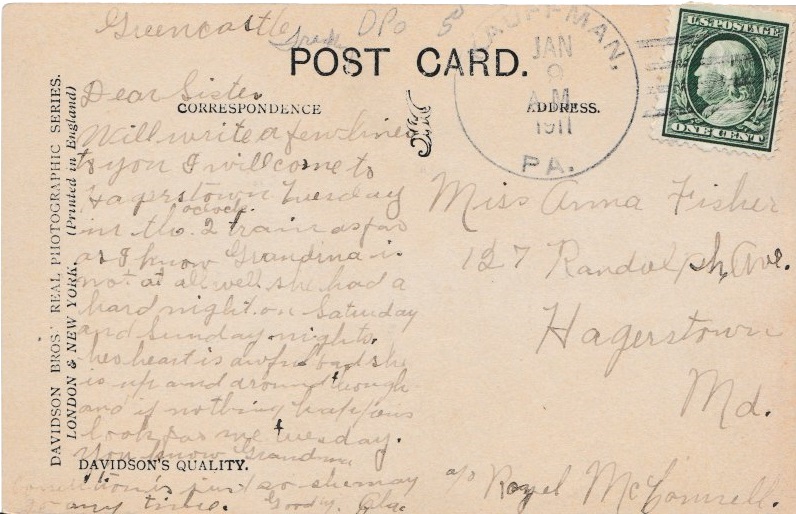 Greencastle
DPO 5
POST CARD.
KAUFFMAN.
JAN
9
A.M.
1911
PA.
U.S. POSTAGE
ONE CENT
CORRESPONDENCE
ADDRESS.
DAVIDSON BROS' REAL PHOTOGRAPHIC SERIES.
LONDON & NEW YORK. (Printed in England)
Dear Sister
Will write a few lines
to you I will come to
Hagerstown Tuesday
oclock
in the 2 train as far
as I know Grandma is
not at all well she had a
hard night on Saturday
and Sunday nights.
her heart is awful bad she
is up and around though
and if nothing happens
look for me tuesday.
You know Grandma
DAVIDSON'S QUALITY.
condition is just so she may
go any time.
Miss Anna Fisher
127 Randolph Ave.
Hagerstown
Md.
Royel McConnell.